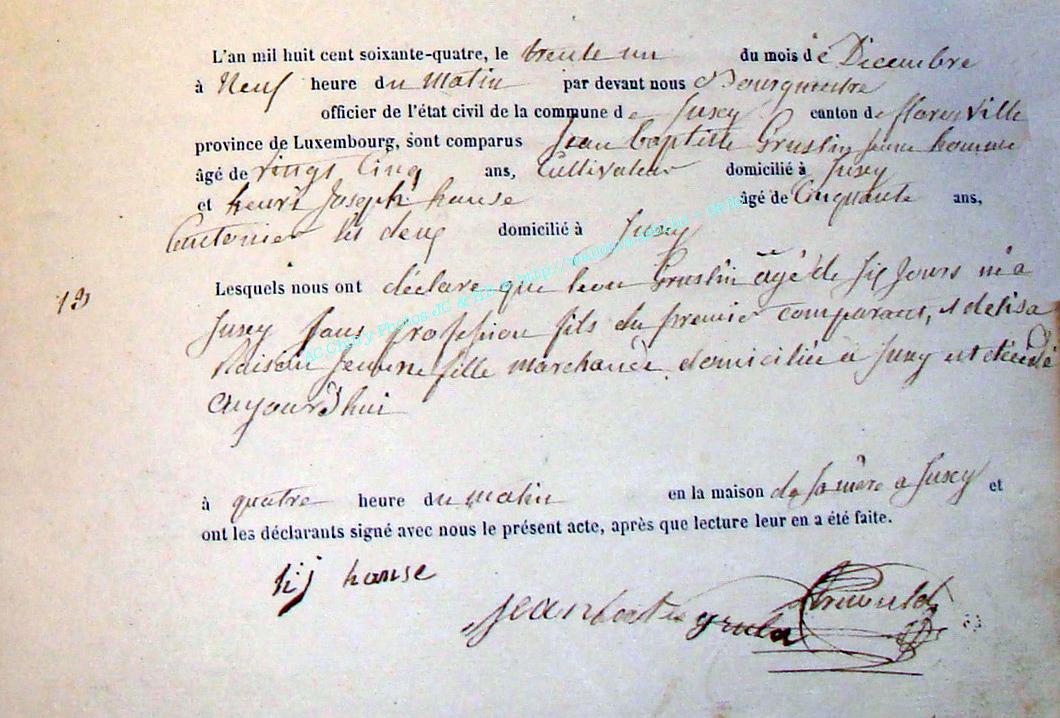 L'an mil huit cent soixante-quatre, le trente un du mois de Decembre
à Neuf heure du matin par devant nous Bourgmestre
officier de l'état civil de la commune de Jusey canton de florenville
province de Luxembourg, sont comparus Jean baptiste Gruslin jeune homme
âgé de vingt Cinq ans, Cultivateur domicilié à Jusey
et henri Joseph hanse âgé de Cinquante ans,
Cantonier les deux domicilié à Jusey
Lesquels nous ont déclare que leon Gruslin âgé de six Jours né a
19
Jusey sans profession fils du premier comparant, et delisa
jeune fille marchande domiciliée a Jusey est décédé
aujourd'hui
à quatre heure du matin en la maison de sa mère a Jusey et
ont les déclarants signé avec nous le présent acte, après que lecture leur en a été faite.
h j hanse
Jean
AC Chiny Photos JG & http://